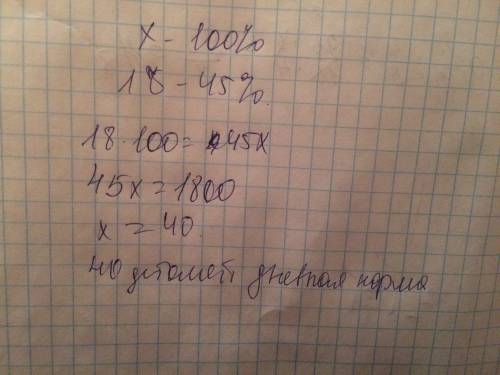 x - 100%
18 - 45%.
18·100=45x
45x=1800
x = 40.
40 деталей дневная норма